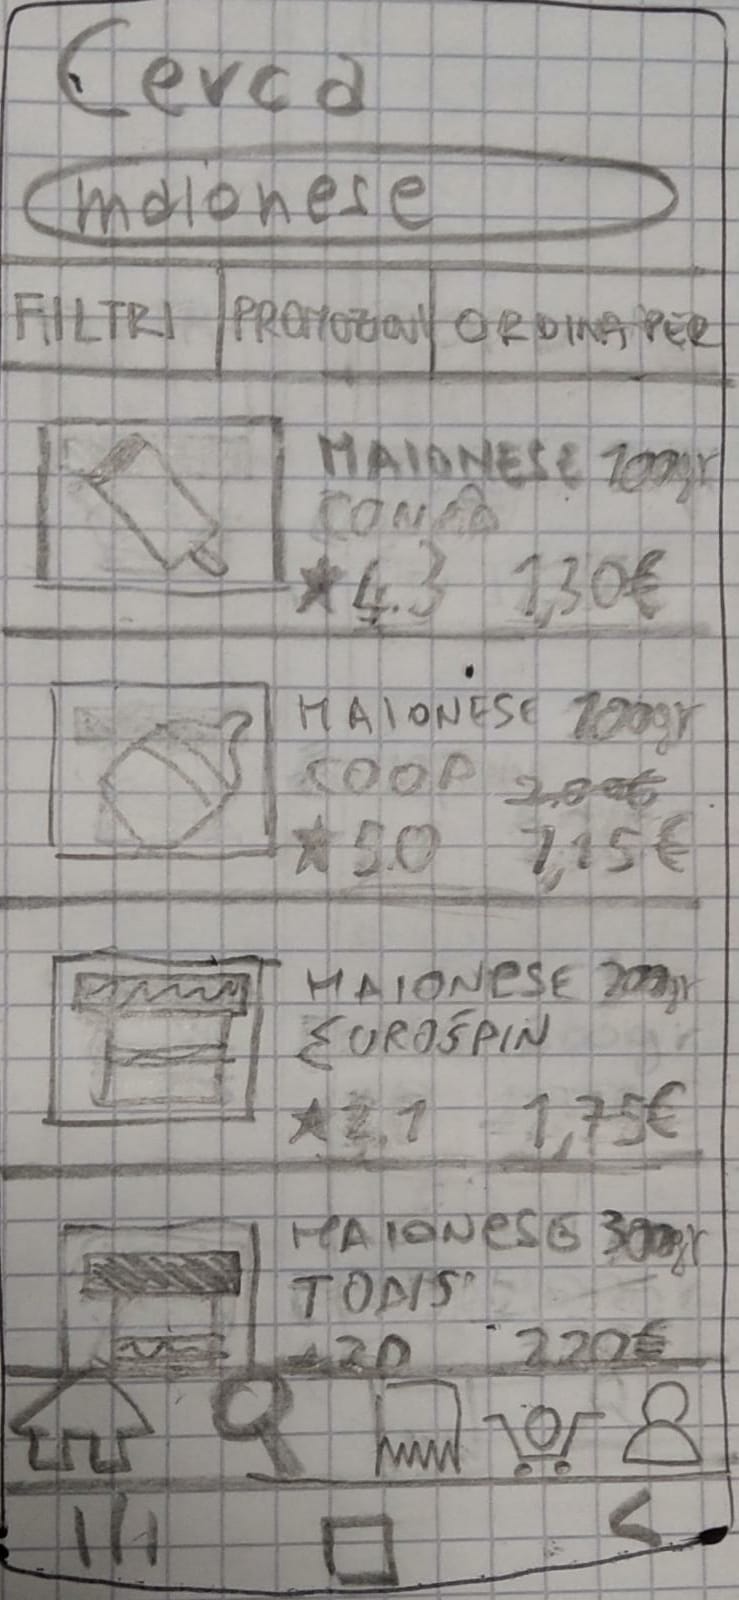 Cerca
maionese
FILTRI PROMOZIONI ORDINA PER
MAIONESE 100gr
CONAD
★4.3 1,30€
MAIONESE 100gr
COOP 2,00€
★5.0 1,15€
MAIONESE 200gr
EUROSPIN
★2.1 1,75€
MAIONESE 300gr
TODIS
2,20€